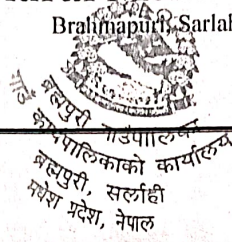 Brahmapuri, Sarlah
ब्रह्मपुरी गाउँपालिका
गाउँ कार्यपालिकाको कार्यालय
ब्रह्मपुरी, सर्लाही
मधेश प्रदेश, नेपाल